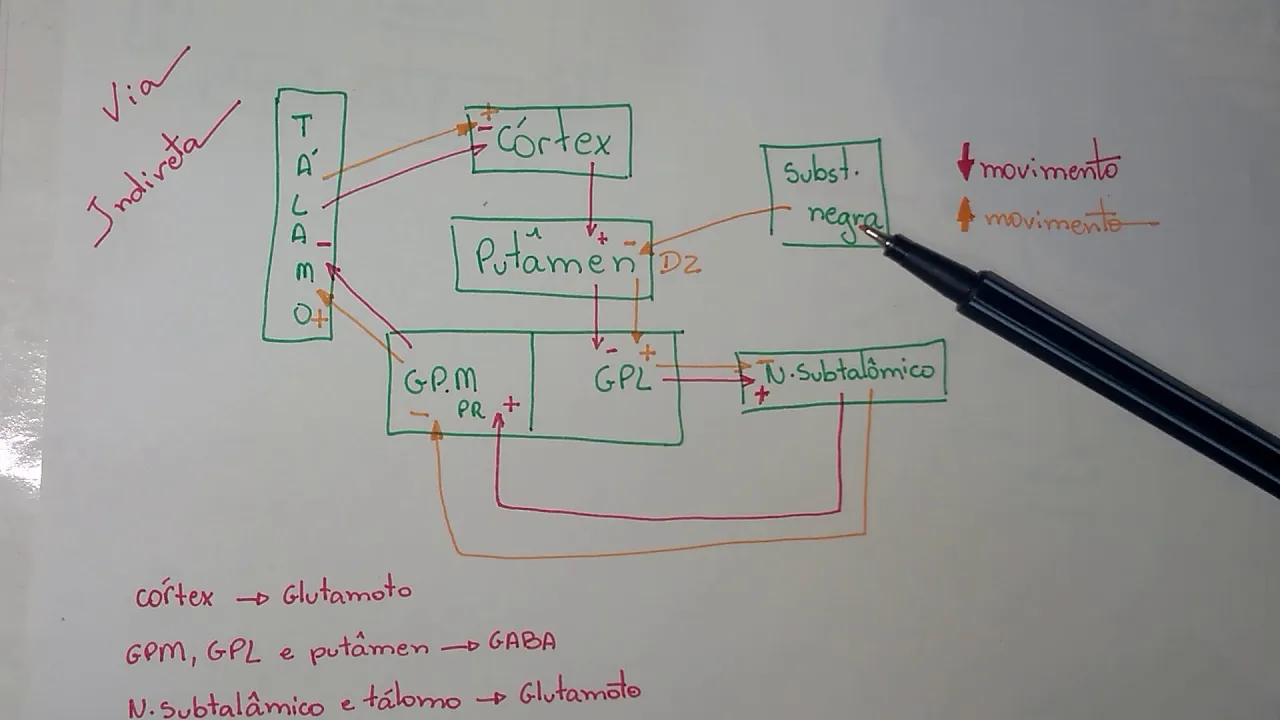 Via
Indireta
TÁLAMO
+
-
Córtex
Subst.
negra
↓ movimento
↑ movimento
-
+
-
Putâmen
D2
+
-
+
GPL
G.P.M
PR
+
-
-
N. Subtalâmico
+
córtex → Glutamato
GPM, GPL e putâmen → GABA
N. Subtalâmico e tálamo → Glutamato